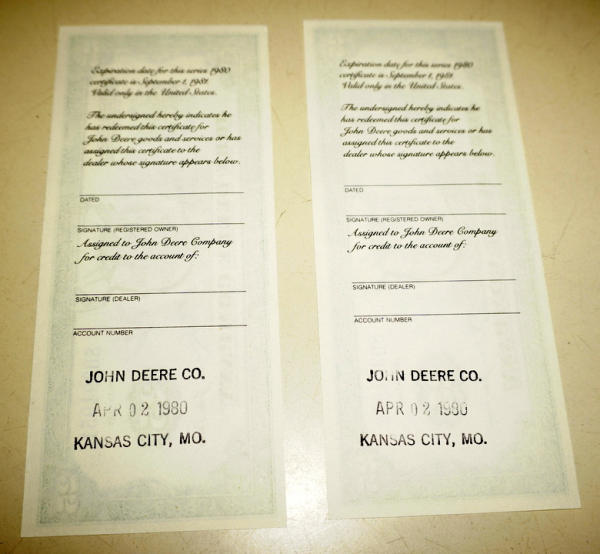 Expiration date for this series 1980
certificate is September 1, 1981.
Valid only in the United States.
The undersigned hereby indicates he
has redeemed this certificate for
John Deere goods and services or has
assigned this certificate to the
dealer whose signature appears below.
DATED
SIGNATURE (REGISTERED OWNER)
Assigned to John Deere Company
for credit to the account of:
SIGNATURE (DEALER)
ACCOUNT NUMBER
JOHN DEERE CO.
APR 02 1980
KANSAS CITY, MO.
Expiration date for this series 1980
certificate is September 1, 1981.
Valid only in the United States.
The undersigned hereby indicates he
has redeemed this certificate for
John Deere goods and services or has
assigned this certificate to the
dealer whose signature appears below.
DATED
SIGNATURE (REGISTERED OWNER)
Assigned to John Deere Company
for credit to the account of:
SIGNATURE (DEALER)
ACCOUNT NUMBER
JOHN DEERE CO.
APR 02 1980
KANSAS CITY, MO.